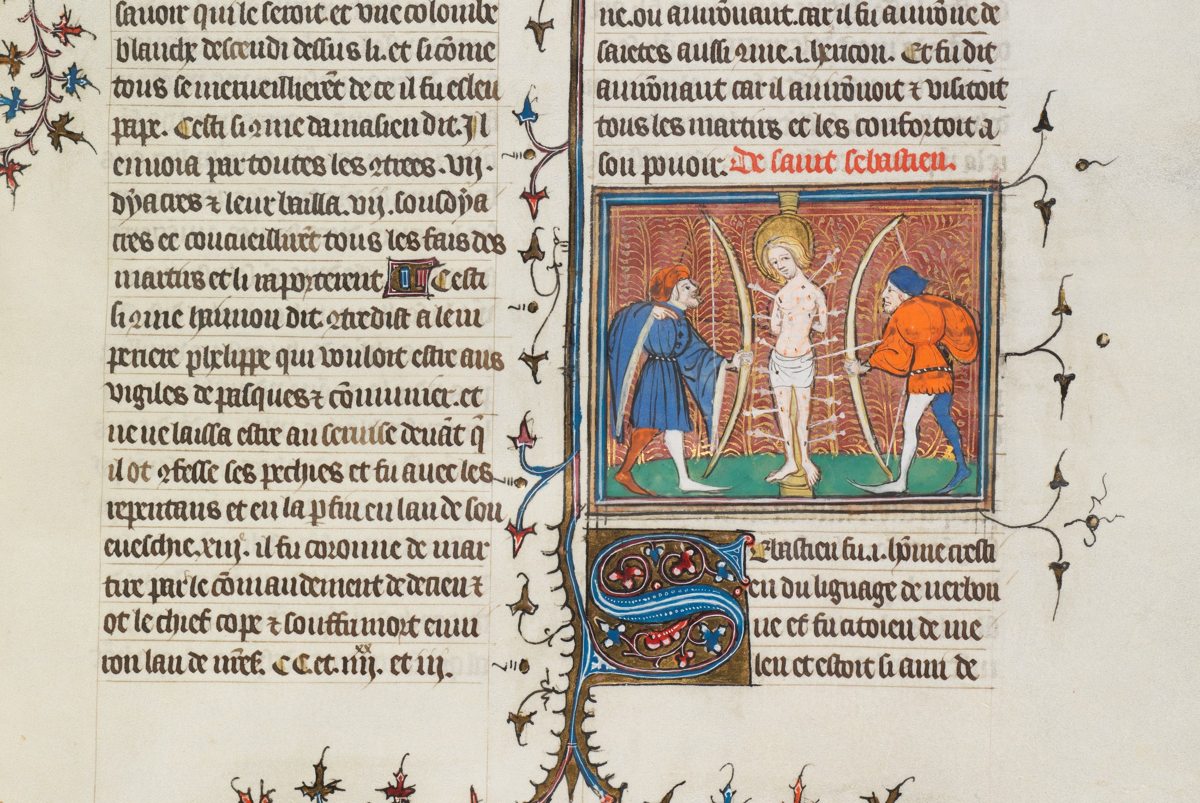 sauoir qui le seroit. et vne colombe
blanche descendi dessus li. et si cõme
tous se merueillierẽt de ce il fu esleu
pape. Cesti si ꝯme damasien dit. Il
enuoia par toutes les ꝯtrees. vij.
dyacres ⁊ leur bailla. vij. sousdya
cres et coucueillirẽt tous les fais des
martirs et li raporterent Cesti
si ꝯme haunou dit. ꝯtredist a lem
periere phelippe qui vouloit estre aus
vigiles de pasques ⁊ cõmunier. et
ne le laissa estre au seruise deuãt q̃
il ot ꝯfesse ses pechies et fu auec les
repentans et en la p fin en lan de son
eueschie. xiij. il fu coronne de mar
tire par le cõmandement de decien ⁊
ot le chief cope ⁊ souffri mort enui
ron lan de nrẽs. CC. et. iiij.xx et iij.
ne. ou auirõnant. car il fu auirõne de
saietes aussi ꝯme. i. hericon. Et fu dit
auirõnant car il auirõnoit ⁊ visitoit
tous les martirs et les confortoit a
son pouoir. De saint sebastien.
Sebastien fu. i. hõme cresti
en du lignage de nerbon
ne et fu citoien de me
len et estoit si ami de